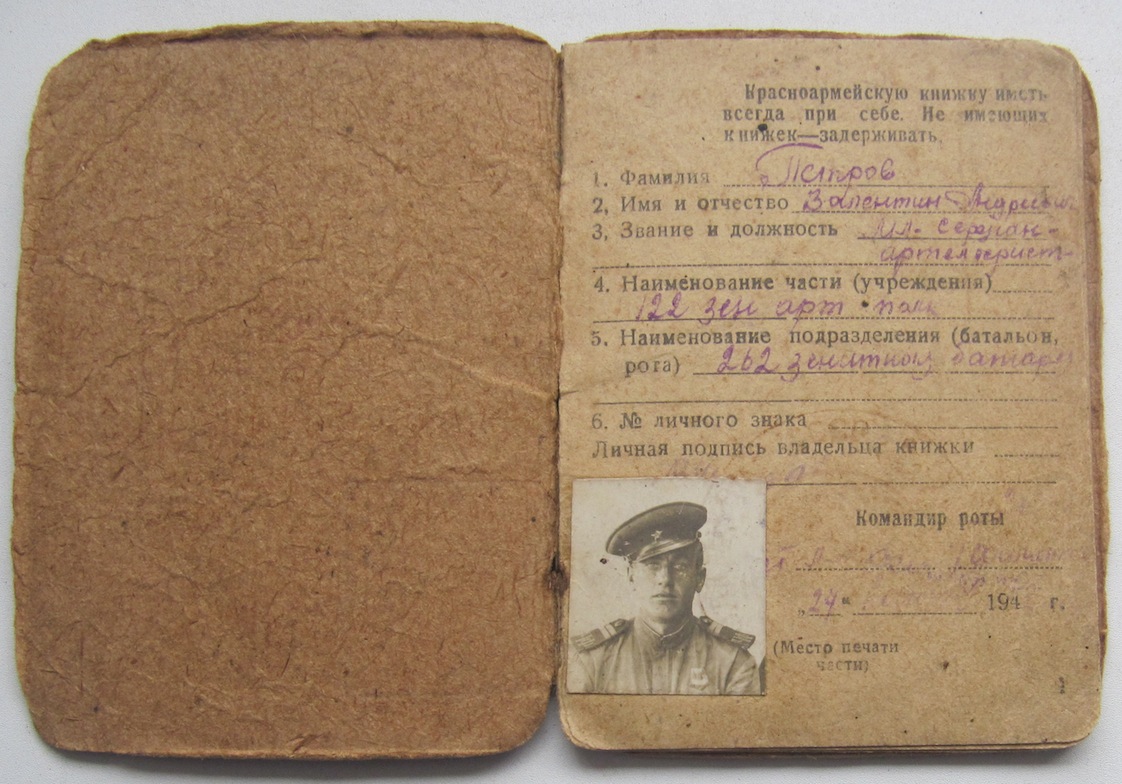 Красноармейскую книжку иметь
всегда при себе. Не имеющих
книжек—задерживать.
1. Фамилия Петров
2. Имя и отчество Валентин Андреевич
3. Звание и должность мл. сержан-
артелерист
4. Наименование части (учреждения)
122 зен арт полк
5. Наименование подразделения (батальон,
рота) 262 зенитной батареи
6. № личного знака
Личная подпись владельца книжки
Командир роты
„24"
194 г.
(Место печати
части)